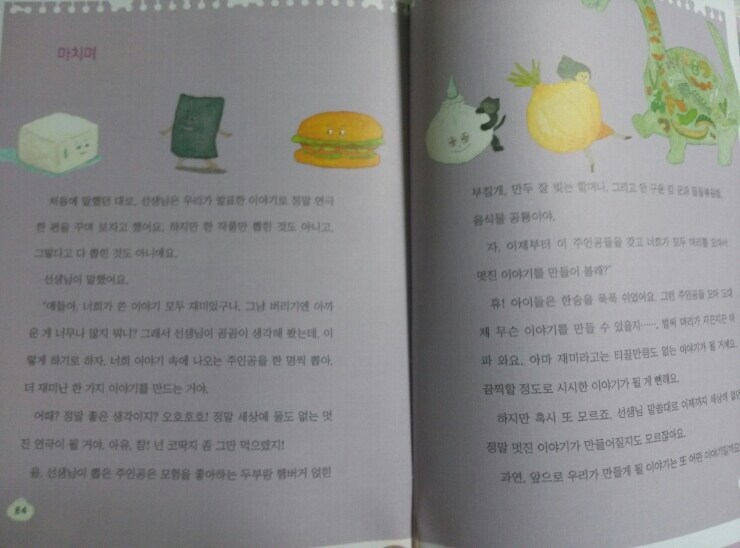 마치며
처음에 말했던 대로, 선생님은 우리가 발표한 이야기로 정말 연극
한 편을 꾸며 보자고 했어요. 하지만 한 작품만 뽑힌 것도 아니고,
그렇다고 다 뽑힌 것도 아니에요.
선생님이 말했어요.
"얘들아. 너희가 쓴 이야기 모두 재미있구나. 그냥 버리기엔 아까
운 게 너무나 많지 뭐니? 그래서 선생님이 곰곰이 생각해 봤는데, 이
렇게 하기로 하자. 너희 이야기 속에 나오는 주인공을 한 명씩 뽑아,
더 재미난 한 가지 이야기를 만드는 거야.
어때? 정말 좋은 생각이지? 오호호호! 정말 세상에 둘도 없는 멋
진 연극이 될 거야. 아유, 참! 넌 코딱지 좀 그만 먹으렴지!
음, 선생님이 뽑은 주인공은 모험을 좋아하는 두부랑 햄버거 얹힌
84
부침개, 만두 잘 빚는 할머니, 그리고 안 구운 김 군과
음식물 공룡이야.
자, 이제부터 이 주인공들을 갖고 너희가 모두 머리를 모아서
멋진 이야기를 만들어 볼래?"
휴! 아이들은 한숨을 푹푹 쉬었어요. 그런 주인공을 모아 도대
체 무슨 이야기를 만들 수 있을지……. 벌써 머리가 지끈지끈 아
파 와요. 아마 재미라고는 티끌만큼도 없는 이야기가 될 거예요.
끔찍할 정도로 시시한 이야기가 될 게 뻔해요.
하지만 혹시 또 모르죠. 선생님 말씀대로 이제까지 세상에 없던
정말 멋진 이야기가 만들어질지도 모르잖아요.
과연, 앞으로 우리가 만들게 될 이야기는 또 어떤 이야기일까요